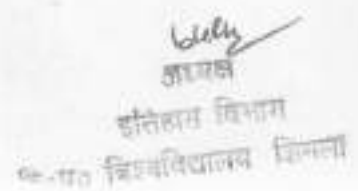 अध्यक्ष
इतिहास विभाग
विश्वविद्यालय शिमला